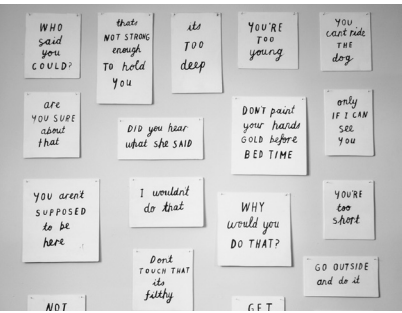 WHO
said
you
COULD?
thats
NOT STRONG
enough
TO hold
YOU
its
TOO
deep
YOU'RE
TOO
young
YOU
cant ride
THE
dog
are
YOU SURE
about
that
DID you hear
what she SAID
DON'T paint
your hands
GOLD before
BED TIME
only
IF I CAN
see
YOU
YOU aren't
SUPPOSED
to be
here
I wouldnt
do that
WHY
would you
DO THAT?
YOU'RE
too
short
Dont
TOUCH THAT
its
filthy
GO OUTSIDE
and do it
NOT
GET